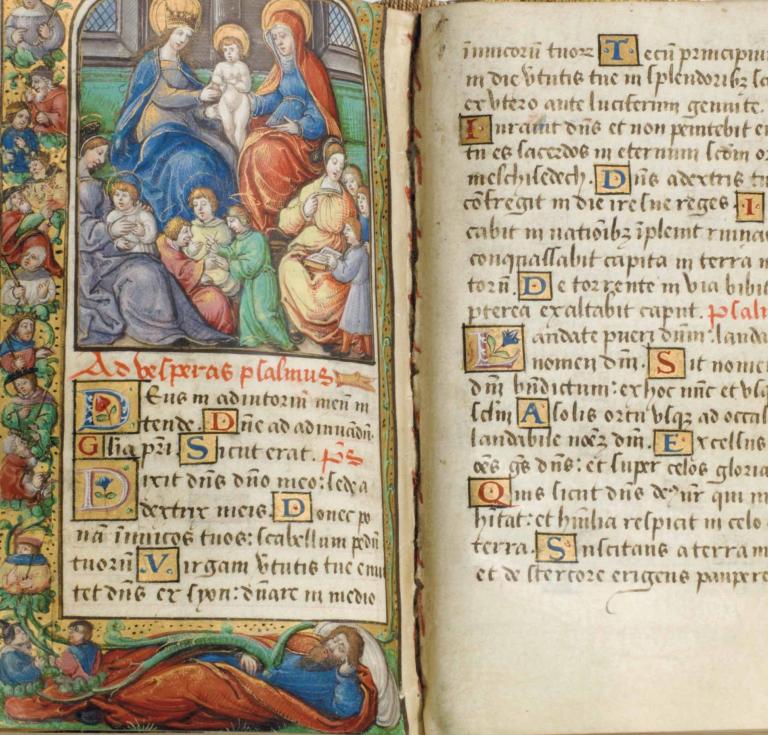 Ad vesperas psalmus
Deus in adiutoriũ meũ in
tende. Dñe ad adiuuãdũ.
Glia p̃ri. Sicut erat. p̃s
Dixit dñs dño meo: sede a
dextris meis. Donec po
nã inimicos tuos: scabellum pedũ
tuorũ Virgam v̾tutis tue emi
tet dñs ex syon: dñare in medio
inimicorũ tuorꝝ Tecũ principiu
in die v̾tutis tue in splendoribꝫ sc
ex vtero ante luciferum genui te.
Iurauit dñs et non penitebit eu
tu es sacerdos in eternum scdm or
melchisedech. Dñs a dextris tu
cõfregit in die ire sue reges I
cabit in nationibꝫ ĩplebit ruina
conquassabit capita in terra m
torũ. De torrente in via bibit
pterea exaltabit caput. psalm
Laudate pueri dñm: lauda
nomen dñi. Sit nomen
dñi bñdictum: ex hoc nũc et vsq
sclm A solis ortu vsqꝫ ad occas
laudabile noẽ dñi. Excelsus
oẽs gẽs dñs: et super celos gloria
Quis sicut dñs de9 ñr qui in
hitat: et hũilia respicit in celo
terra. Suscitans a terra in
et de stercore erigens paupere